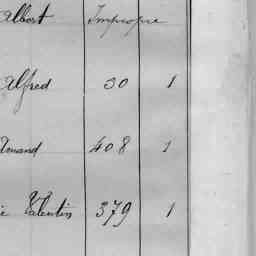 Albert Impropre
Alfred 30 1
Amand 408 1
ie Valentin 379 1